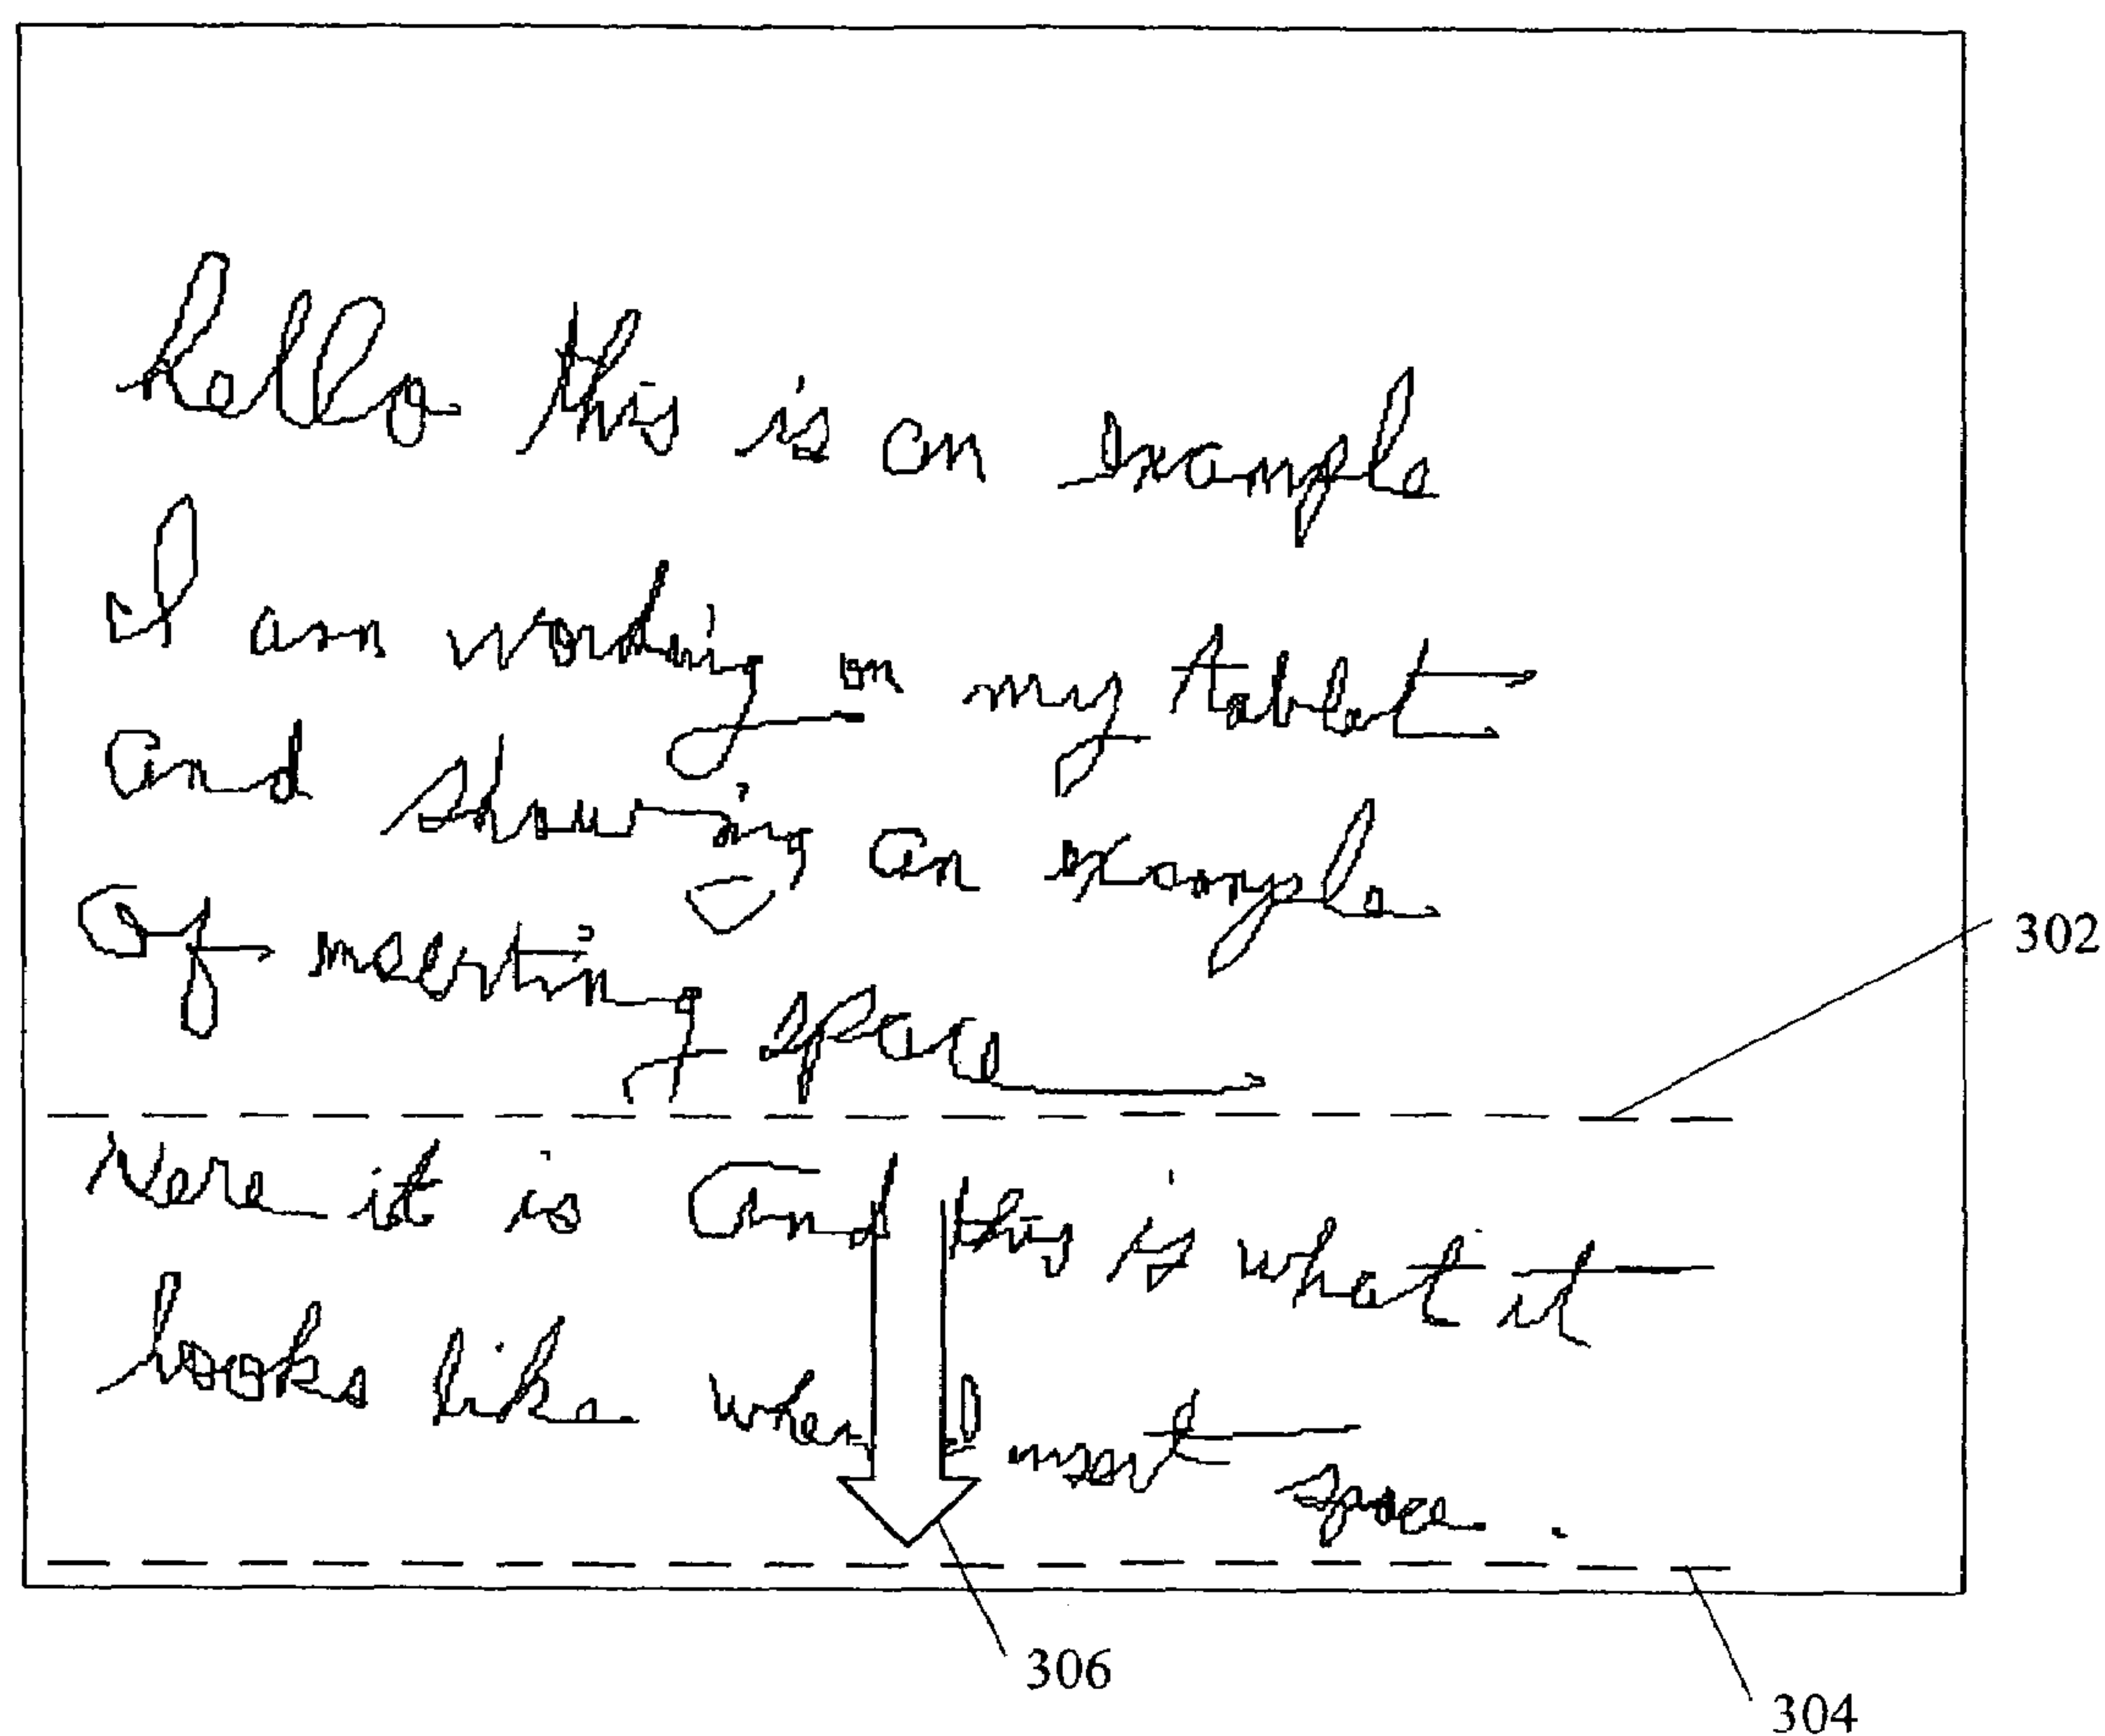 hello this is an example
I am working on my tablet
and showing an example
Of inserting space
302
Here it is and this is what it
looks like when I insert space .
306
304